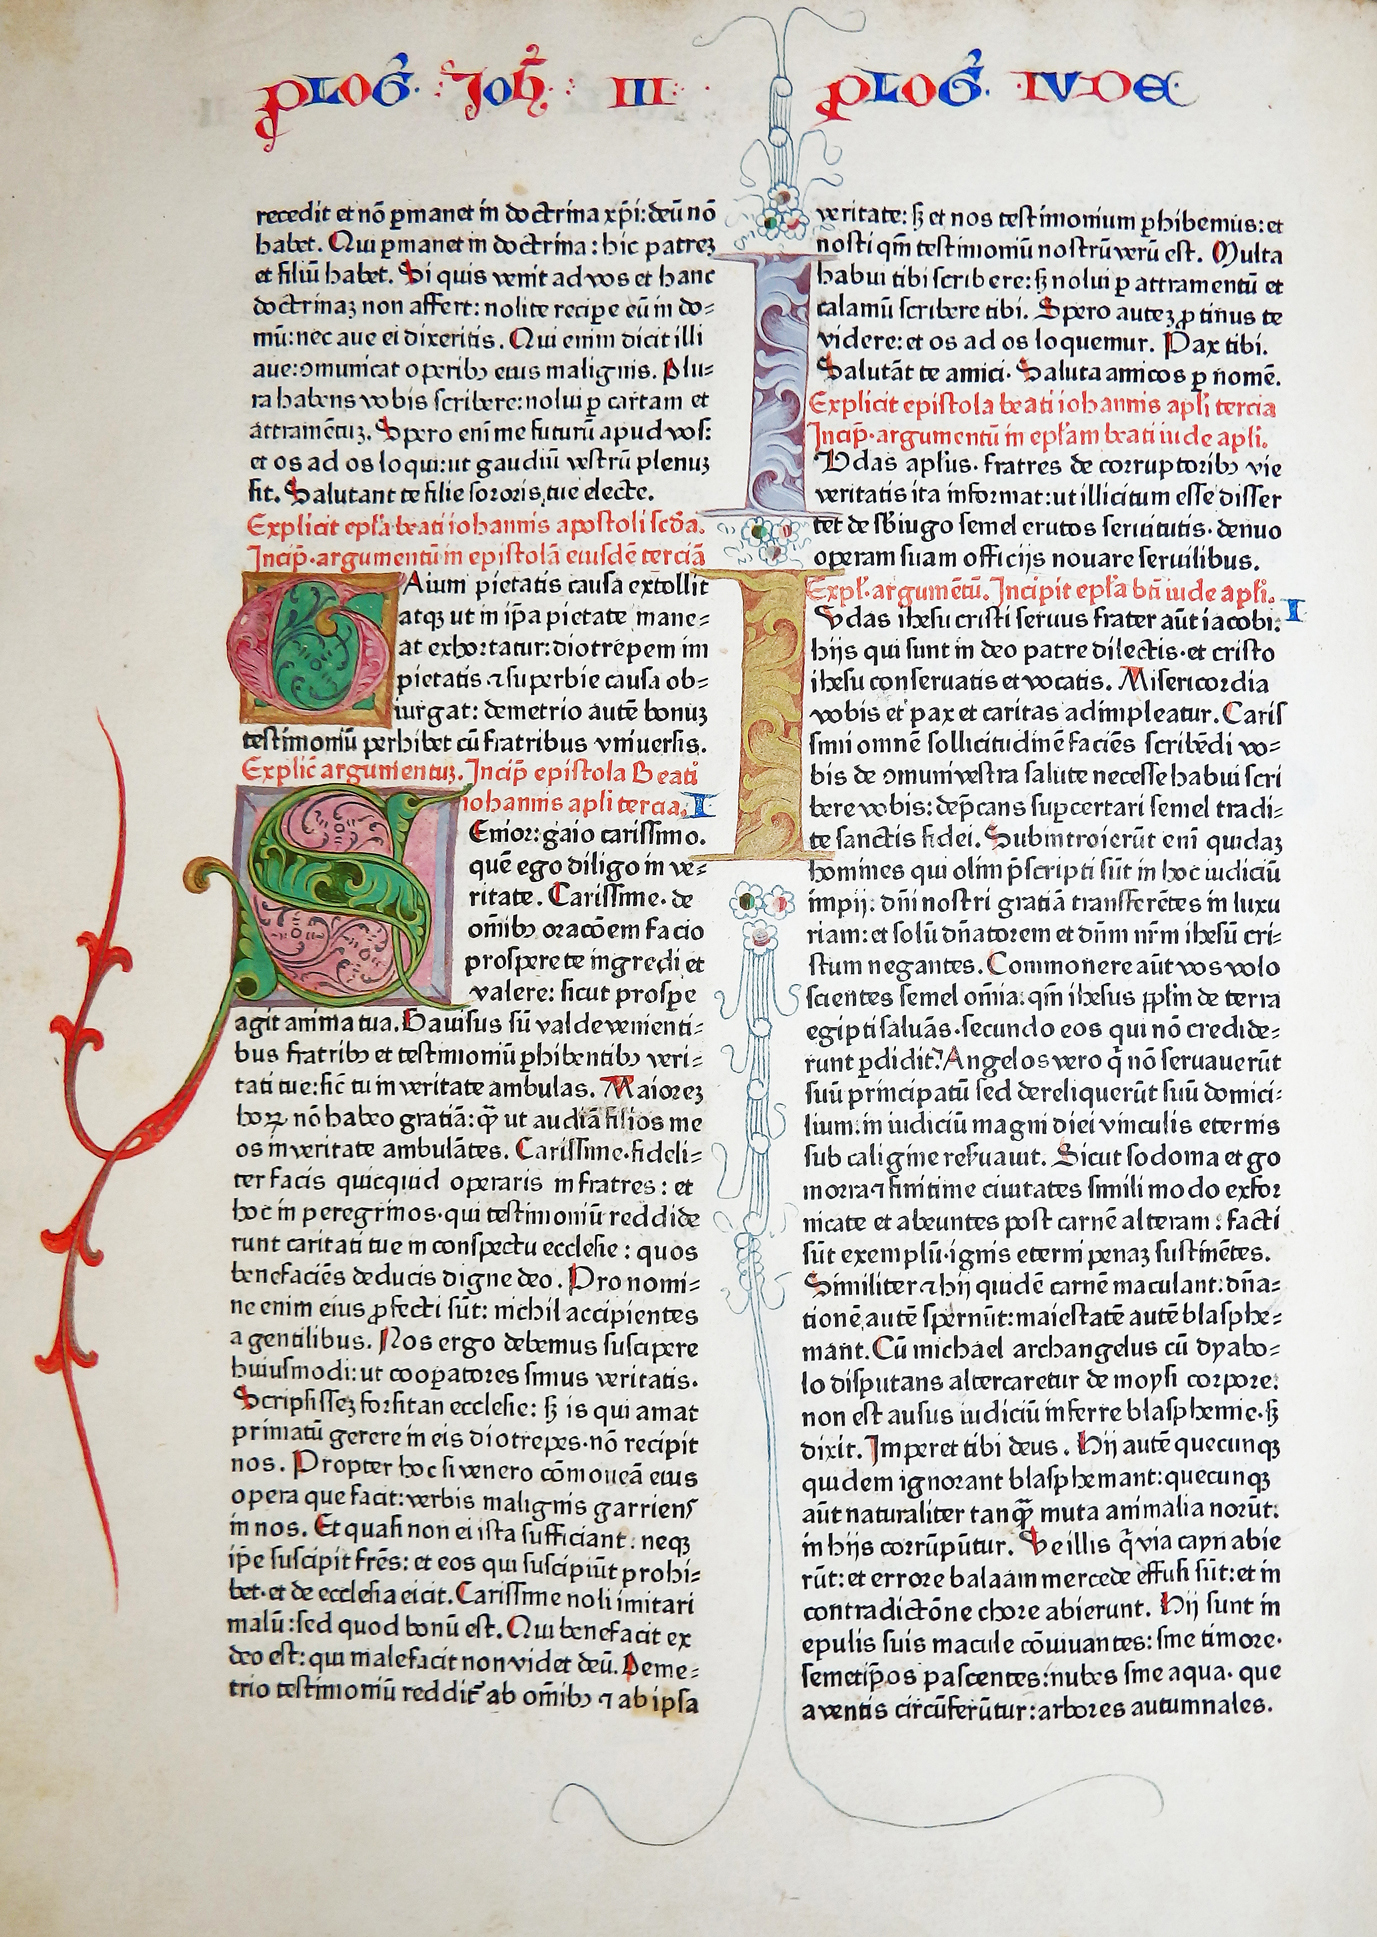 PLOG̃. Joh̃. III
recedit et nō ꝑmanet in doctrina xp̄i: deū nō
habet. Qui ꝑmanet in doctrina: hic patreꝫ
et filiū habet. Si quis venit ad vos et hanc
doctrinaꝫ non affert: nolite recipe eū in do⸗
mū: nec aue ei dixeritis. Qui enim dicit illi
aue: ꝯmunicat operibꝰ eius malignis. Plu⸗
ra habens vobis scribere: nolui ꝑ cartam et
attramētuꝫ. Spero eni me futurū apud vos:
et os ad os loqui: ut gaudiū vestrū plenuꝫ
sit. Salutant te filie sororis tue electe.
Explicit epl̄a beati iohannis apostoli scd̄a.
Incip̄. argumentum in epistolā eiusdē terciā
GAium pietatis causa extollit
atqꝫ ut in ip̄a pietate mane⸗
at exhortatur: diotrepem im
pietatis ⁊ superbie causa ob⸗
iurgat: demetrio autē bonuꝫ
testimoniū perhibet cū fratribus vniuersis.
Explic̄ argumentuꝫ. Incip̄ epistola Beati
iohannis apl̄i tercia. I
SEnior: gaio carissimo.
quē ego diligo in ve⸗
ritate. Carissime. de
om̄ibꝰ orac̄oem facio
prospere te ingredi et
valere: sicut prospe
agit anima tua. Gauisus sū valde venienti⸗
bus fratribꝰ et testimoniū ꝑhibentibꝰ veri⸗
tati tue: sic̄ tu in veritate ambulas. Maioreꝫ
hoꝝ nō habeo gratiā: q̄ꝫ ut audiā filios me
os in veritate ambulātes. Carissime. fideli⸗
ter facis quicquid operaris in fratres: et
hoc in peregrinos. qui testimoniū reddide
runt caritati tue in conspectu ecclesie: quos
benefaciēs deducis digne deo. Pro nomi⸗
ne enim eius ꝓfecti sūt: nichil accipientes
a gentilibus. Nos ergo debemus suscipere
huiusmodi: ut cooꝑatores simus veritatis.
Scripsisseꝫ forsitan ecclesie: sꝫ is qui amat
primatū gerere in eis diotrepes. nō recipit
nos. Propter hoc si venero cōmoueā eius
opera que facit: verbis malignis garriens
in nos. Et quasi non ei ista sufficiant: neqꝫ
ip̄e suscipit frēs: et eos qui suscipiūt prohi⸗
bet. et de ecclesia eicit. Carissime noli imitari
malū: sed quod bonū est. Qui benefacit ex
deo est: qui malefacit non videt deū. Deme⸗
trio testimoniū reddit᷑ ab om̄ibꝰ ⁊ ab ipsa
PLOG̃. IVDE
veritate: sꝫ et nos testimonium ꝑhibemus: et
nosti qm̄ testimoniū nostrū verū est. Multa
habui tibi scribere: sꝫ nolui ꝑ attramentū et
calamū scribere tibi. Spero auteꝫ ꝓtinus te
videre: et os ad os loquemur. Pax tibi.
Salutāt te amici. Saluta amicos ꝑ nomē.
Explicit epistola beati iohannis apl̄i tercia
Incip̄. argumentū in epl̄am beati iude apl̄i.
IVdas apl̄us. fratres de corruptoribꝰ vie
veritatis ita informat: ut illicitum esse disser
tet de sb̄iugo semel erutos seruitutis. denuo
operam suam officijs nouare seruilibus.
Expl̄. argumētū. Incipit epl̄a bt̄i iude apl̄i.
IVdas ihesu cristi seruus frater aūt iacobi. I
hijs qui sunt in deo patre dilectis. et cristo
ihesu conseruatis et vocatis. Misericordia
vobis et pax et caritas adimpleatur. Caris
simi omnē sollicitudinē faciēs scribēdi vo⸗
bis de ꝯmuni vestra salute necesse habui scri
bere vobis: dep̄cans supcertari semel tradi⸗
te sanctis fidei. Subintroierūt eni quidaꝫ
homines qui olim p̄scripti sūt in hoc iudiciū
impij: dn̄i nostri gratiā transferētes in luxu
riam: et solū dn̄atorem et dn̄m nr̄m ihesū cri⸗
stum negantes. Commonere aūt vos volo
scientes semel om̄ia. qm̄ ihesus pplm̄ de terra
egipti saluās. secundo eos qui nō credide⸗
runt ꝑdidit. Angelos vero q̄ nō seruauerūt
suū principatū sed dereliquerūt suū domici⸗
lium: in iudiciū magni diei vinculis eternis
sub caligine res̄uauit. Sicut sodoma et go
morra ⁊ finitime ciuitates simili modo exfor
nicate et abeuntes post carnē alteram: facti
sūt exemplū. ignis eterni penaꝫ sustinētes.
Similiter ⁊ hij quidē carnē maculant: dn̄a⸗
tionē autē spernūt: maiestatē autē blasphe⸗
mant. Cū michael archangelus cū dyabo⸗
lo disputans altercaretur de moysi corpore:
non est ausus iudiciū inferre blasphemie. sꝫ
dixit. Imperet tibi deus. Hij autē quecunqꝫ
quidem ignorant blasphemant: quecunqꝫ
aūt naturaliter tanq̄ꝫ muta animalia norūt:
in hijs corrūpūtur. Ve illis q̄ via cayn abie
rūt: et errore balaam mercede effusi sūt: et in
contradictōne chore abierunt. Hij sunt in
epulis suis macule cōuiuantes: sine timore.
semetip̄os pascentes: nubes sine aqua. que
a ventis circūferūtur: arbores autumnales.